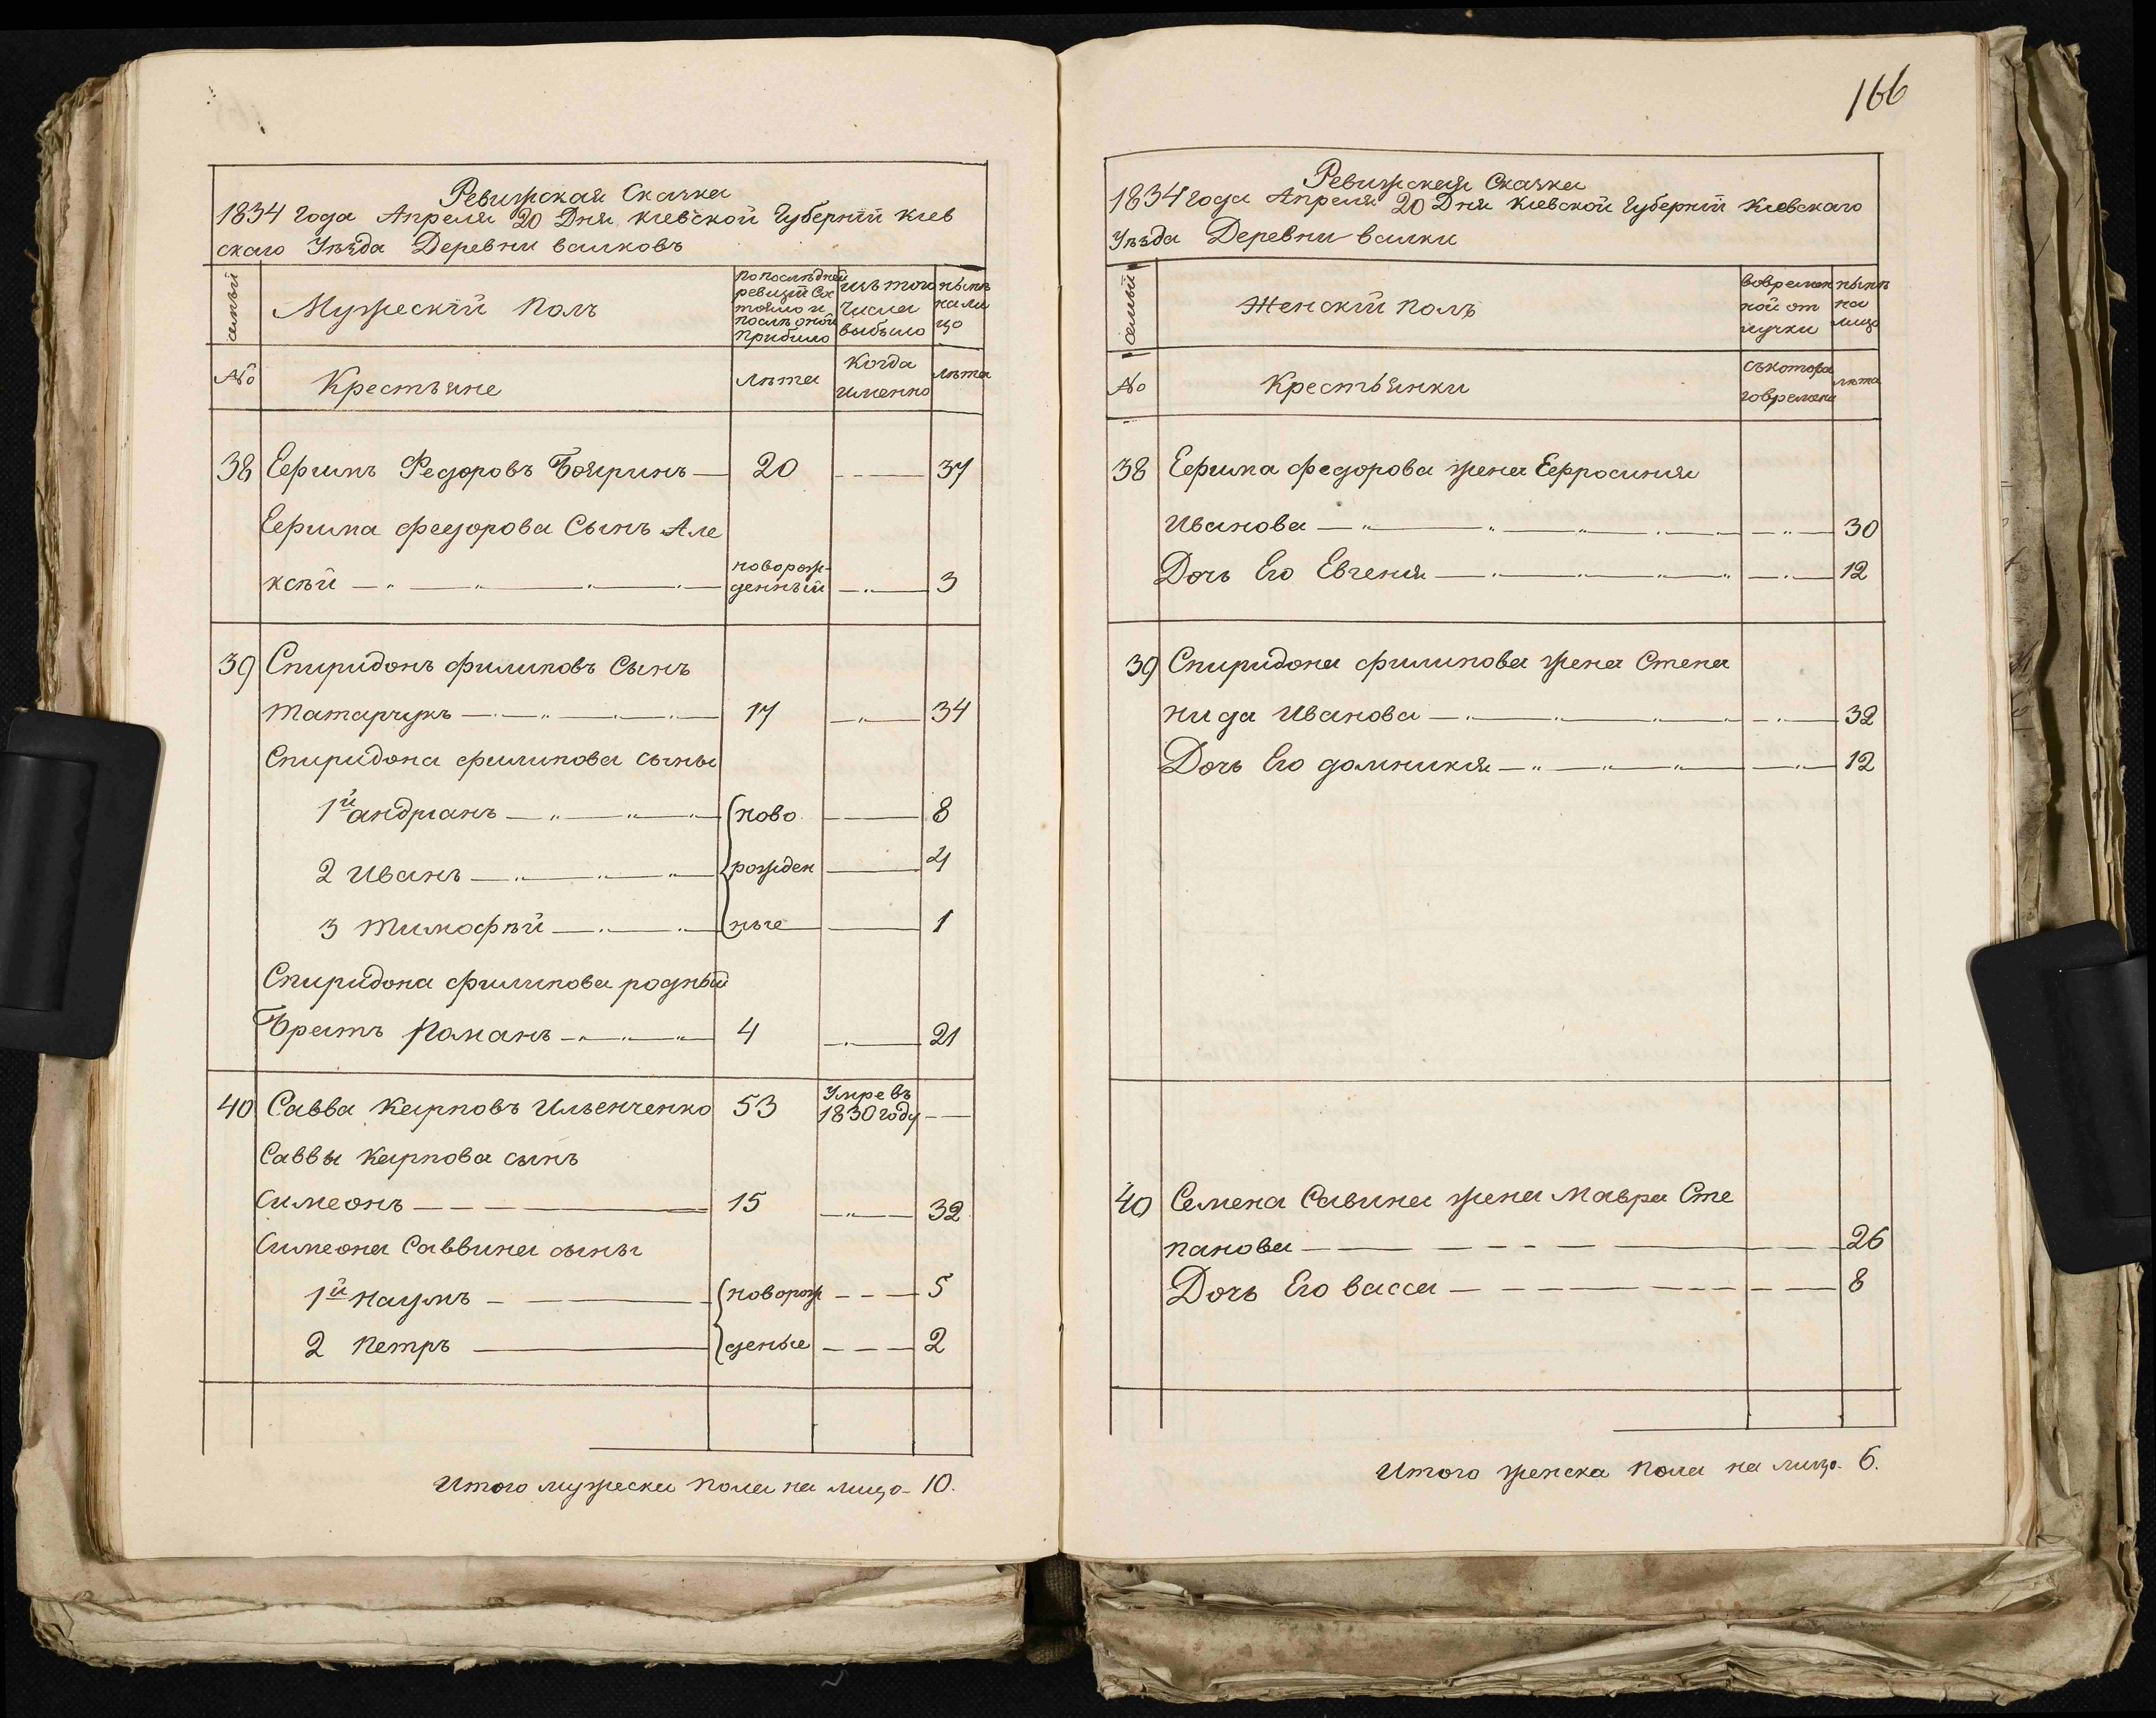 Ревижская Скаска
1834 года Апреля 20 Дня Киевской Губерніи Киев
скаго Уѣзда Деревни валковъ
семьи
Мужескій полъ
попослѣдней
ревизіи Со
тояло и
послѣ оной
прибило
изъ того
числа
выбыло
нынѣ
на ли
цо
№
Крестьяне
лѣта
Когда
именно
лѣта
38 Ефимъ Федоровъ Бояринъ 20 37
Ефима федорова Сынъ Але
ксѣй новорож-
денный 3
39 Спиридонъ филиповъ Сынъ
татарчукъ 17 34
Спиридона филипова сыны
1й андрианъ ново 8
2 Иванъ рожден 4
3 тимофѣй ные 1
Спиридона филипова родный
Братъ Романъ 4 21
40 Савва Карповъ Ильенченко 53 Умре въ
1830 году
Саввы Карпова сынъ
Симеонъ 15 32
Симеона Саввина сыны
1й наумъ новорож 5
2 петръ деные 2
Итого мужеска пола на лицо 10.
166
Ревижская Скаска
1834 года Апреля 20 Дня Киевской Губерніи Киевскаго
Уѣзда Деревни валки
семьи
Женскій полъ
вовремен
ной от
лучки
нынѣ
на
лицо
№
Крестьянки
съ котора
говремени
лѣта
38 Ефима федорова жена Ефросиния
Иванова 30
Дочь Его Евгения 12
39 Спиридона филипова жена Степа
нида Иванова 32
Дочь Его домникия 12
40 Семена Савина жена Мавра Сте
панова 26
Дочь Его васса 8
Итого женска пола на лицо. 6.